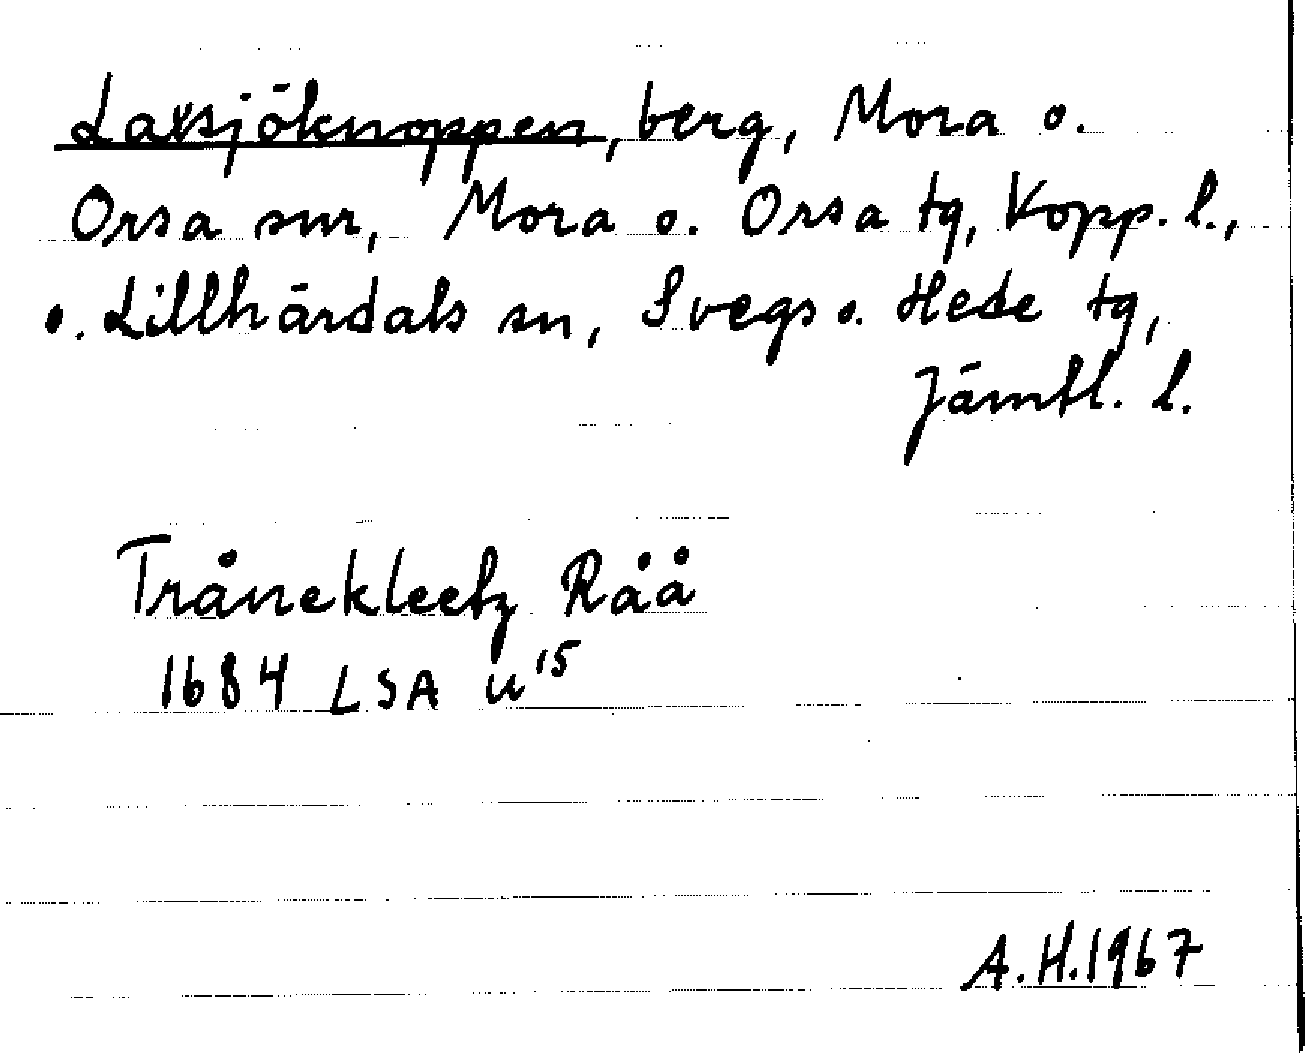 Laxsjöknoppen, berg, Mora o.
Orsa snr, Mora o. Orsa tg, Kopp. l.,
o. Lillhärdals sn, Svegs o. Hede tg,
Jämtl. l.
Trånekleetz Råå
1684 LSA u¹⁵
A.H. 1967